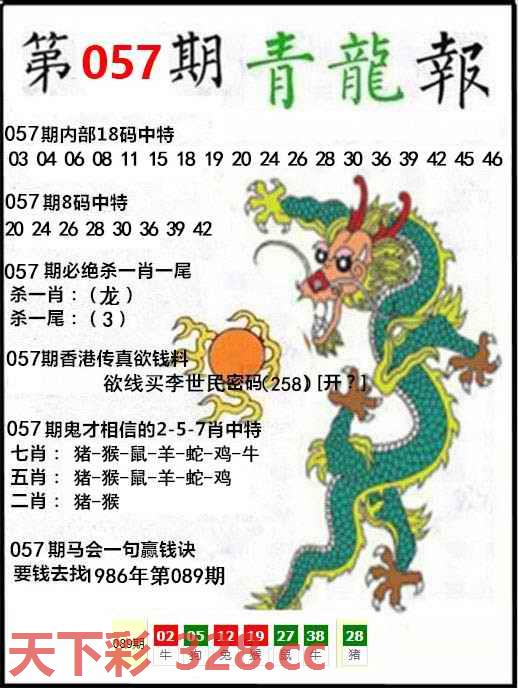 第057期青龍報
057期内部18码中特
03 04 06 08 11 15 18 19 20 24 26 28 30 36 39 42 45 46
057期8码中特
20 24 26 28 30 36 39 42
057期必绝杀一肖一尾
杀一肖：（龙）
杀一尾：（3）
057期香港传真欲钱料
欲线买李世民密码(258)[开?]
057期鬼才相信的2-5-7肖中特
七肖：猪-猴-鼠-羊-蛇-鸡-牛
五肖：猪-猴-鼠-羊-蛇-鸡
二肖：猪-猴
057期马会一句赢钱诀
要钱去找1986年第089期
089期 02 05 12 19 27 38 28
牛 狗 兔 猴 鼠 牛 猪
天下彩 328.cc